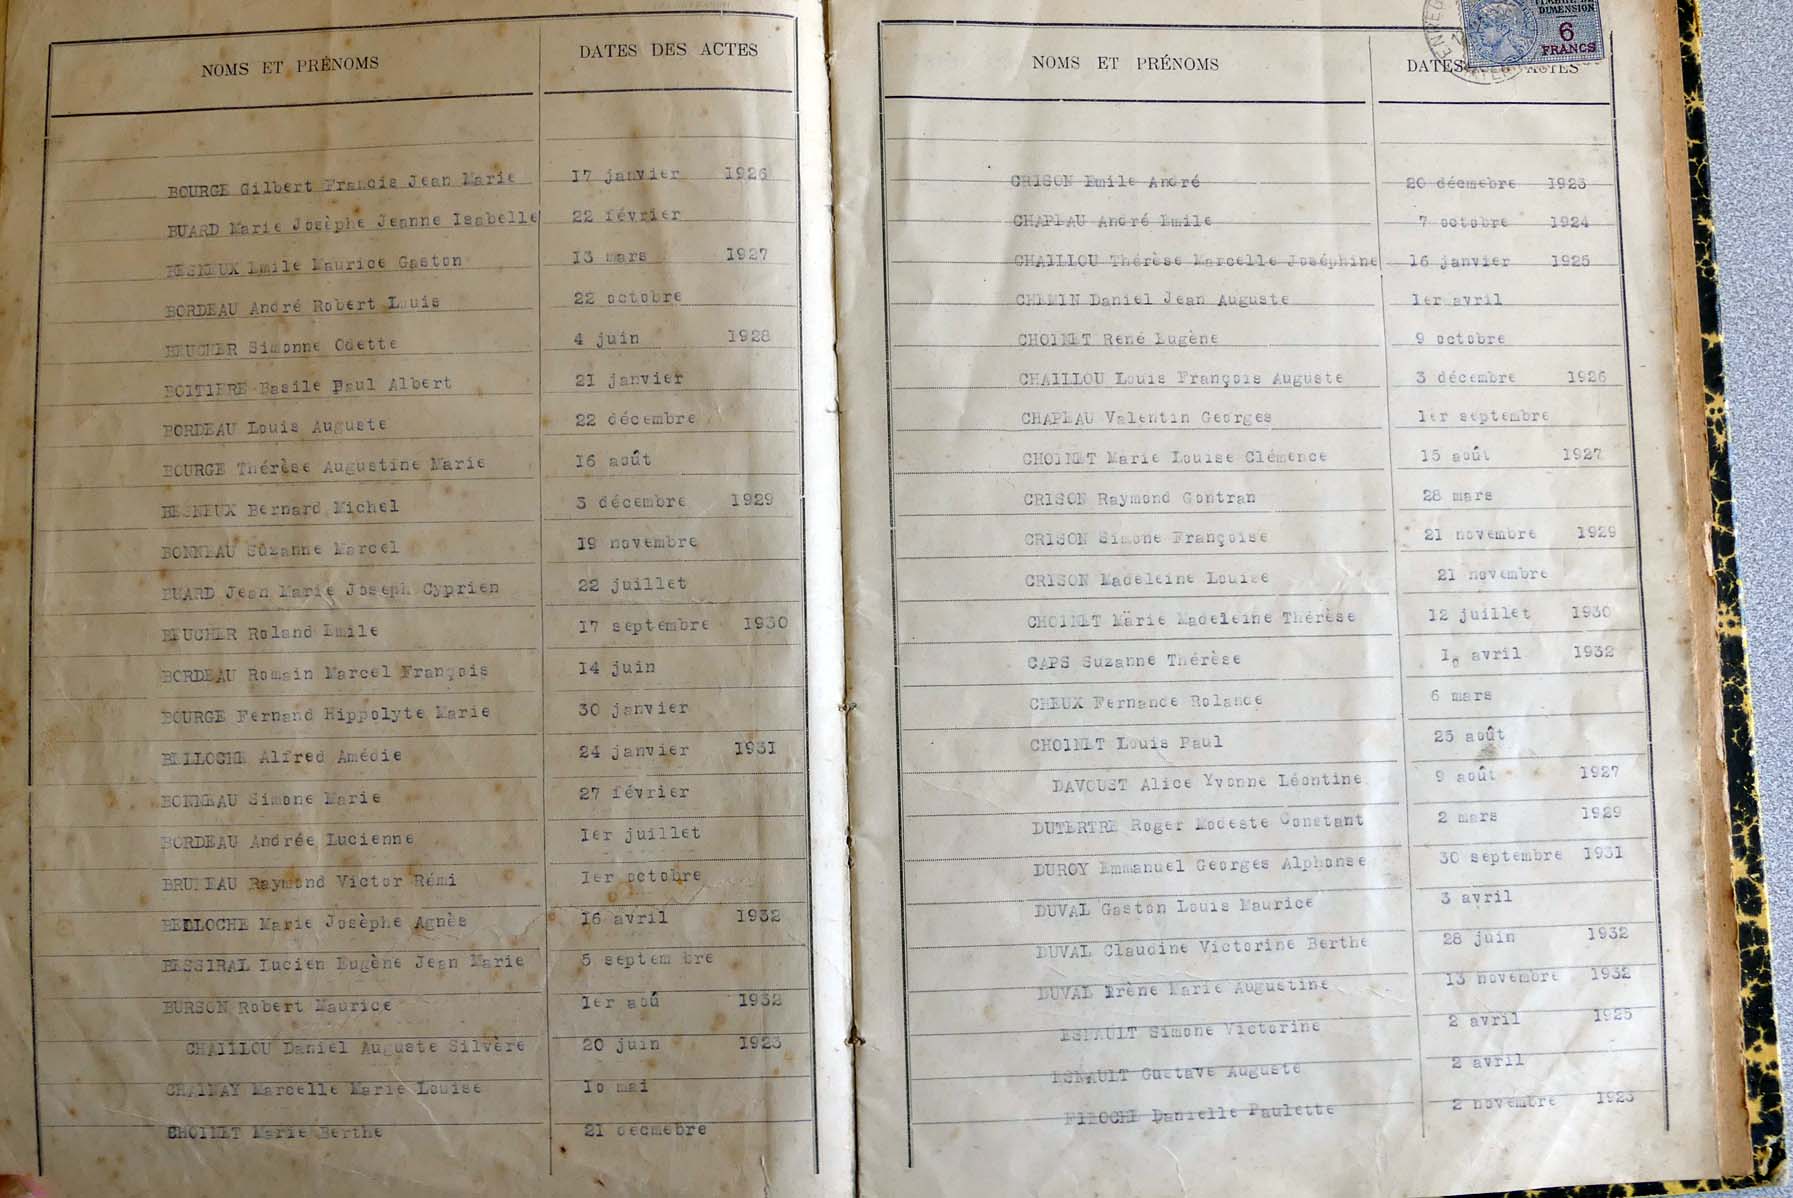 NOMS ET PRÉNOMS DATES DES ACTES
BOURGE Gilbert Francis Jean Marie 17 janvier 1926
BUARD Marie Josèphe Jeanne Isabelle 22 février
BESNEUX Emile Maurice Gaston 13 mars 1927
BORDEAU André Robert Louis 22 octobre
BEUCHER Simonne Odette 4 juin 1928
BOITIERE Basile Paul Albert 21 janvier
BORDEAU Louis Auguste 22 décembre
BOURGE Thérèse Augustine Marie 16 août
BESNEUX Bernard Michel 3 décembre 1929
BONNEAU Suzanne Marcel 19 novembre
BUARD Jean Marie Joseph Cyprien 22 juillet
BEUCHER Roland Emile 17 septembre 1930
BORDEAU Romain Marcel François 14 juin
BOURGE Fernand Hippolyte Marie 30 janvier
BELLOCHE Alfred Amédie 24 janvier 1931
BONNEAU Simone Marie 27 février
BORDEAU Andrée Lucienne 1er juillet
BRUNEAU Raymond Victor Rémi 1er octobre
BELLOCHE Marie Josèphe Agnès 16 avril 1932
BESSIRAL Lucien Eugène Jean Marie 5 septem bre
BURSON Robert Maurice 1er aoû 1932
CHAILLOU Daniel Auguste Silvère 20 juin 1923
CHAINAY Marcelle Marie Louise 10 mai
CHOINET Marie Berthe 21 decmebre
NOMS ET PRÉNOMS DATES ACTES
DIMENSION
6
FRANCS
CRISON Emile André 20 décmebre 1923
CHAPEAU André Emile 7 octobre 1924
CHAILLOU Thérèse Marcelle Joséphine 16 janvier 1925
CHEMIN Daniel Jean Auguste 1er avril
CHOINET René Eugène 9 octobre
CHAILLOU Louis François Auguste 3 décembre 1926
CHAPEAU Valentin Georges 1er septembre
CHOINET Marie Louise Clémence 15 août 1927
CRISON Raymond Gontran 28 mars
CRISON Simone Françoise 21 novembre 1929
CRISON Madeleine Louise 21 novembre
CHOINET Marie Madeleine Thérèse 12 juillet 1930
CAPS Suzanne Thérèse avril 1932
CHEUX Fernande Rolande 6 mars
CHOINET Louis Paul 25 août
DAVOUST Alice Yvonne Léontine 9 août 1927
DUTERTRE Roger Modeste Constant 2 mars 1929
DUROY Emmanuel Georges Alphonse 30 septembre 1931
DUVAL Gaston Louis Maurice 3 avril
DUVAL Claudine Victorine Berthe 28 juin 1932
DUVAL Irène Marie Augustine 13 novembre 1932
ESNAULT Simone Victorine 2 avril 1925
ESNAULT Gustave Auguste 2 avril
PIROCHE Danielle Paulette 2 novembre 1923